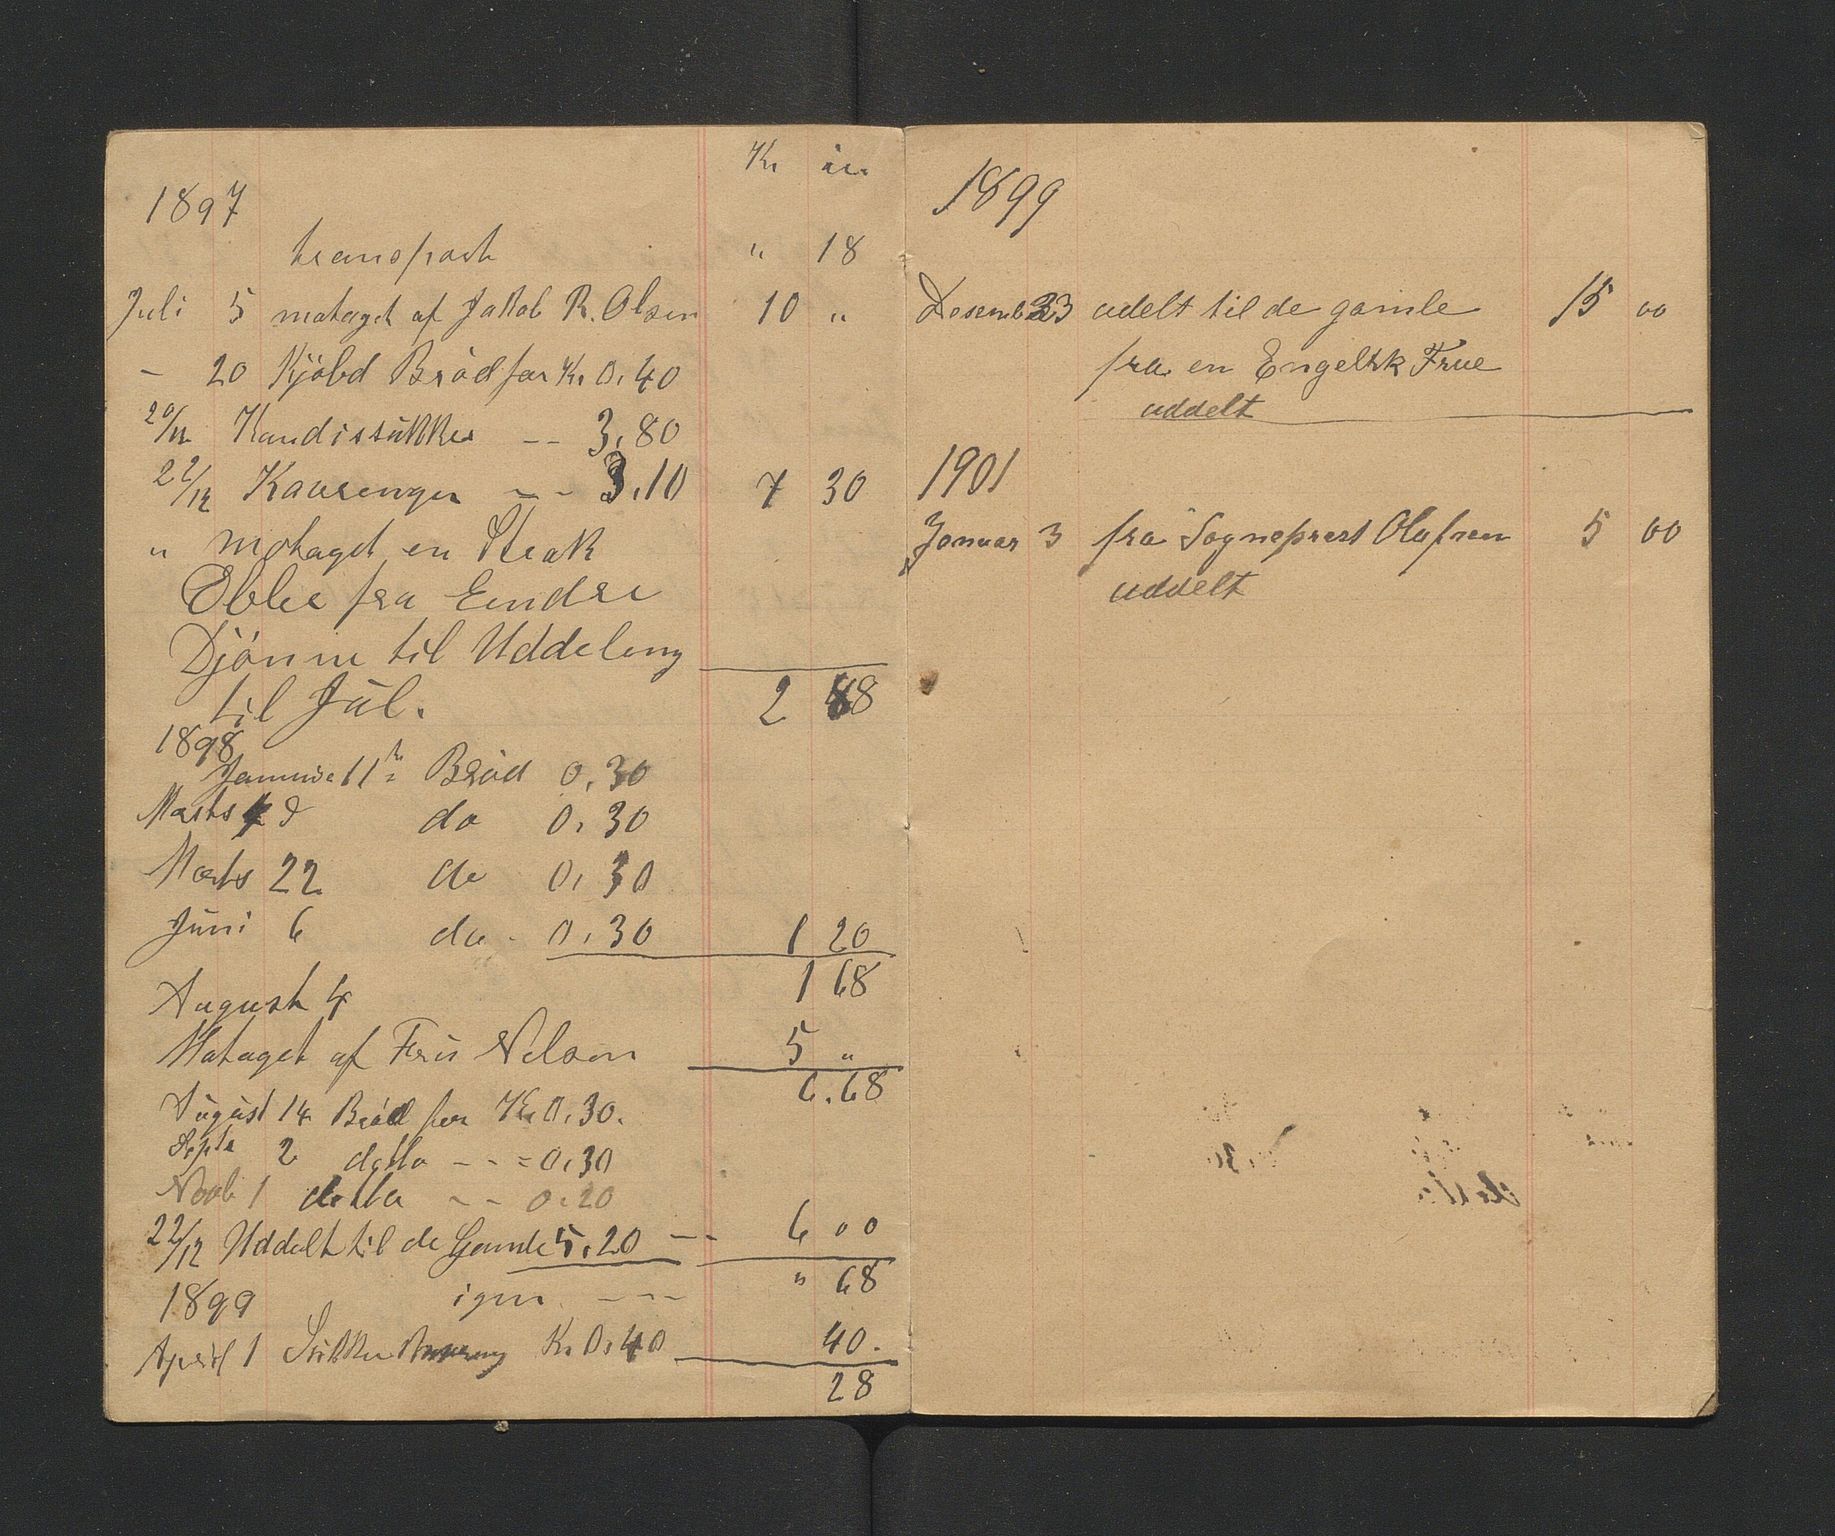 Kr
1897
transport " 18
Juli 5 motaget af Jakob R. Olsen 10 "
- 20 Kjöbd Bröd for Kr 0.40
20/12 Kandissukker -- 3.80
22/12 Kavrenger -- 3.10 7 30
" motaget en Strak
Ebler fra Eindre
Djönne til Uddeling
til Jul. 2 88
1898
Januar 11te Bröd 0.30
Marts do 0.30
Marts 22 do 0.30
Juni 6 do - 0.30 1 20
1 68
August 4
Motaget af Fru Nelson 5 "
6.68
August 14 Bröd for Kr 0.30.
Septr 2 detto - - = 0.30
Novb 1 detto - - 0.20
22/12 Uddelt til de Gamle 5.20 -- 6 00
igen --- " 68
1899
April 1 Sukker Kr 0.40 40.
28
1899
Desemb 23 udelt til de gamle 15 00
fra en Engelsk Frue
uddelt
1901
Januar 3 fra Sogneprest Olafsen 5 00
uddelt